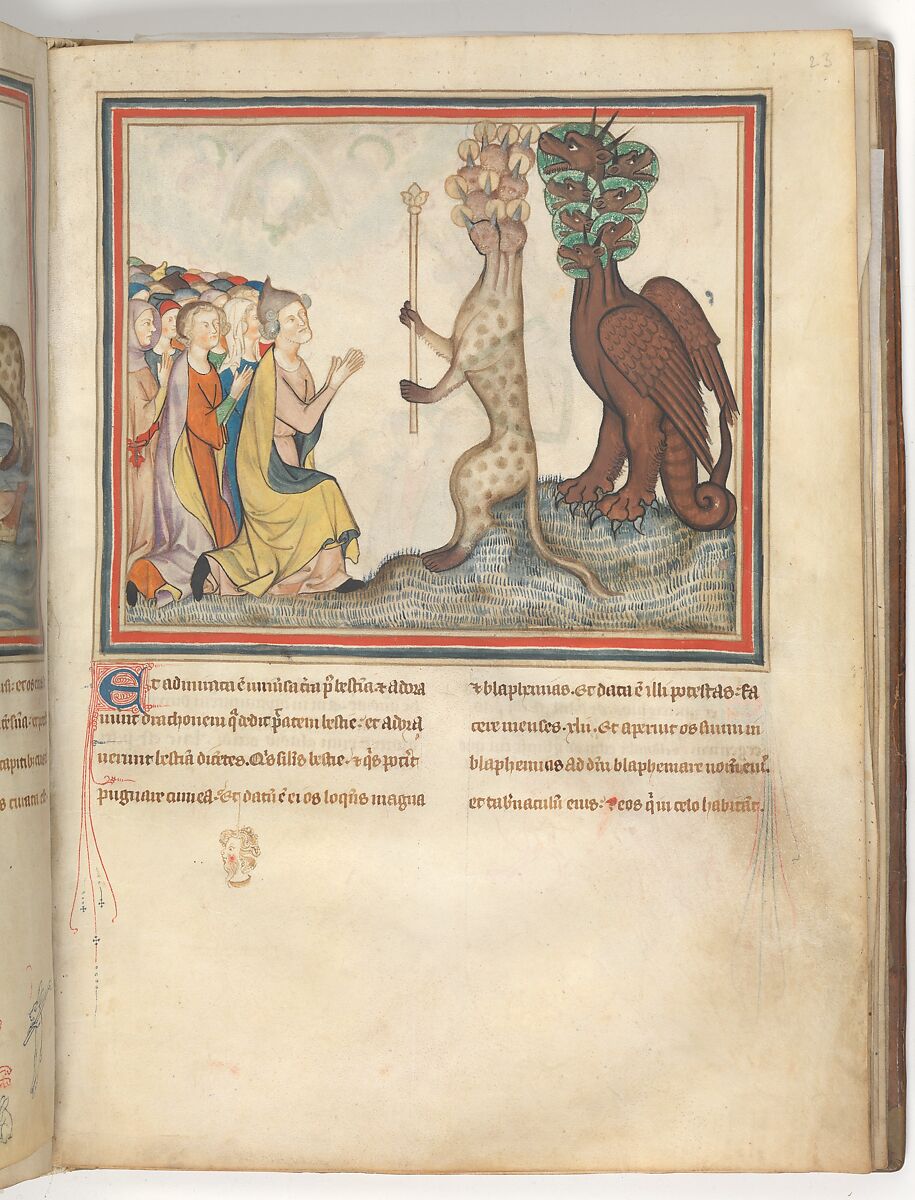 23
Et admirata ē uniu͛sa t͛ra p͛ bestiā ⁊ adora
uunt drachonem q͛ dedit p͛tatem bestie ⁊ et adora
uerunt bestiā dicētes. Q͛s sił͛is bestie ⁊ q͛s pot͛it
pugnare cum ea. Et datū ē ei os loquēs magna
⁊ blaphemias. Et data ē illi potestas fa
cere menses .xlii. Et aperuit os suum in
blaphemias ad dm̄ blaphemare nomē eiu͛.
et tab͛naculū eius ⁊ eos q͛ in celo habitāt.